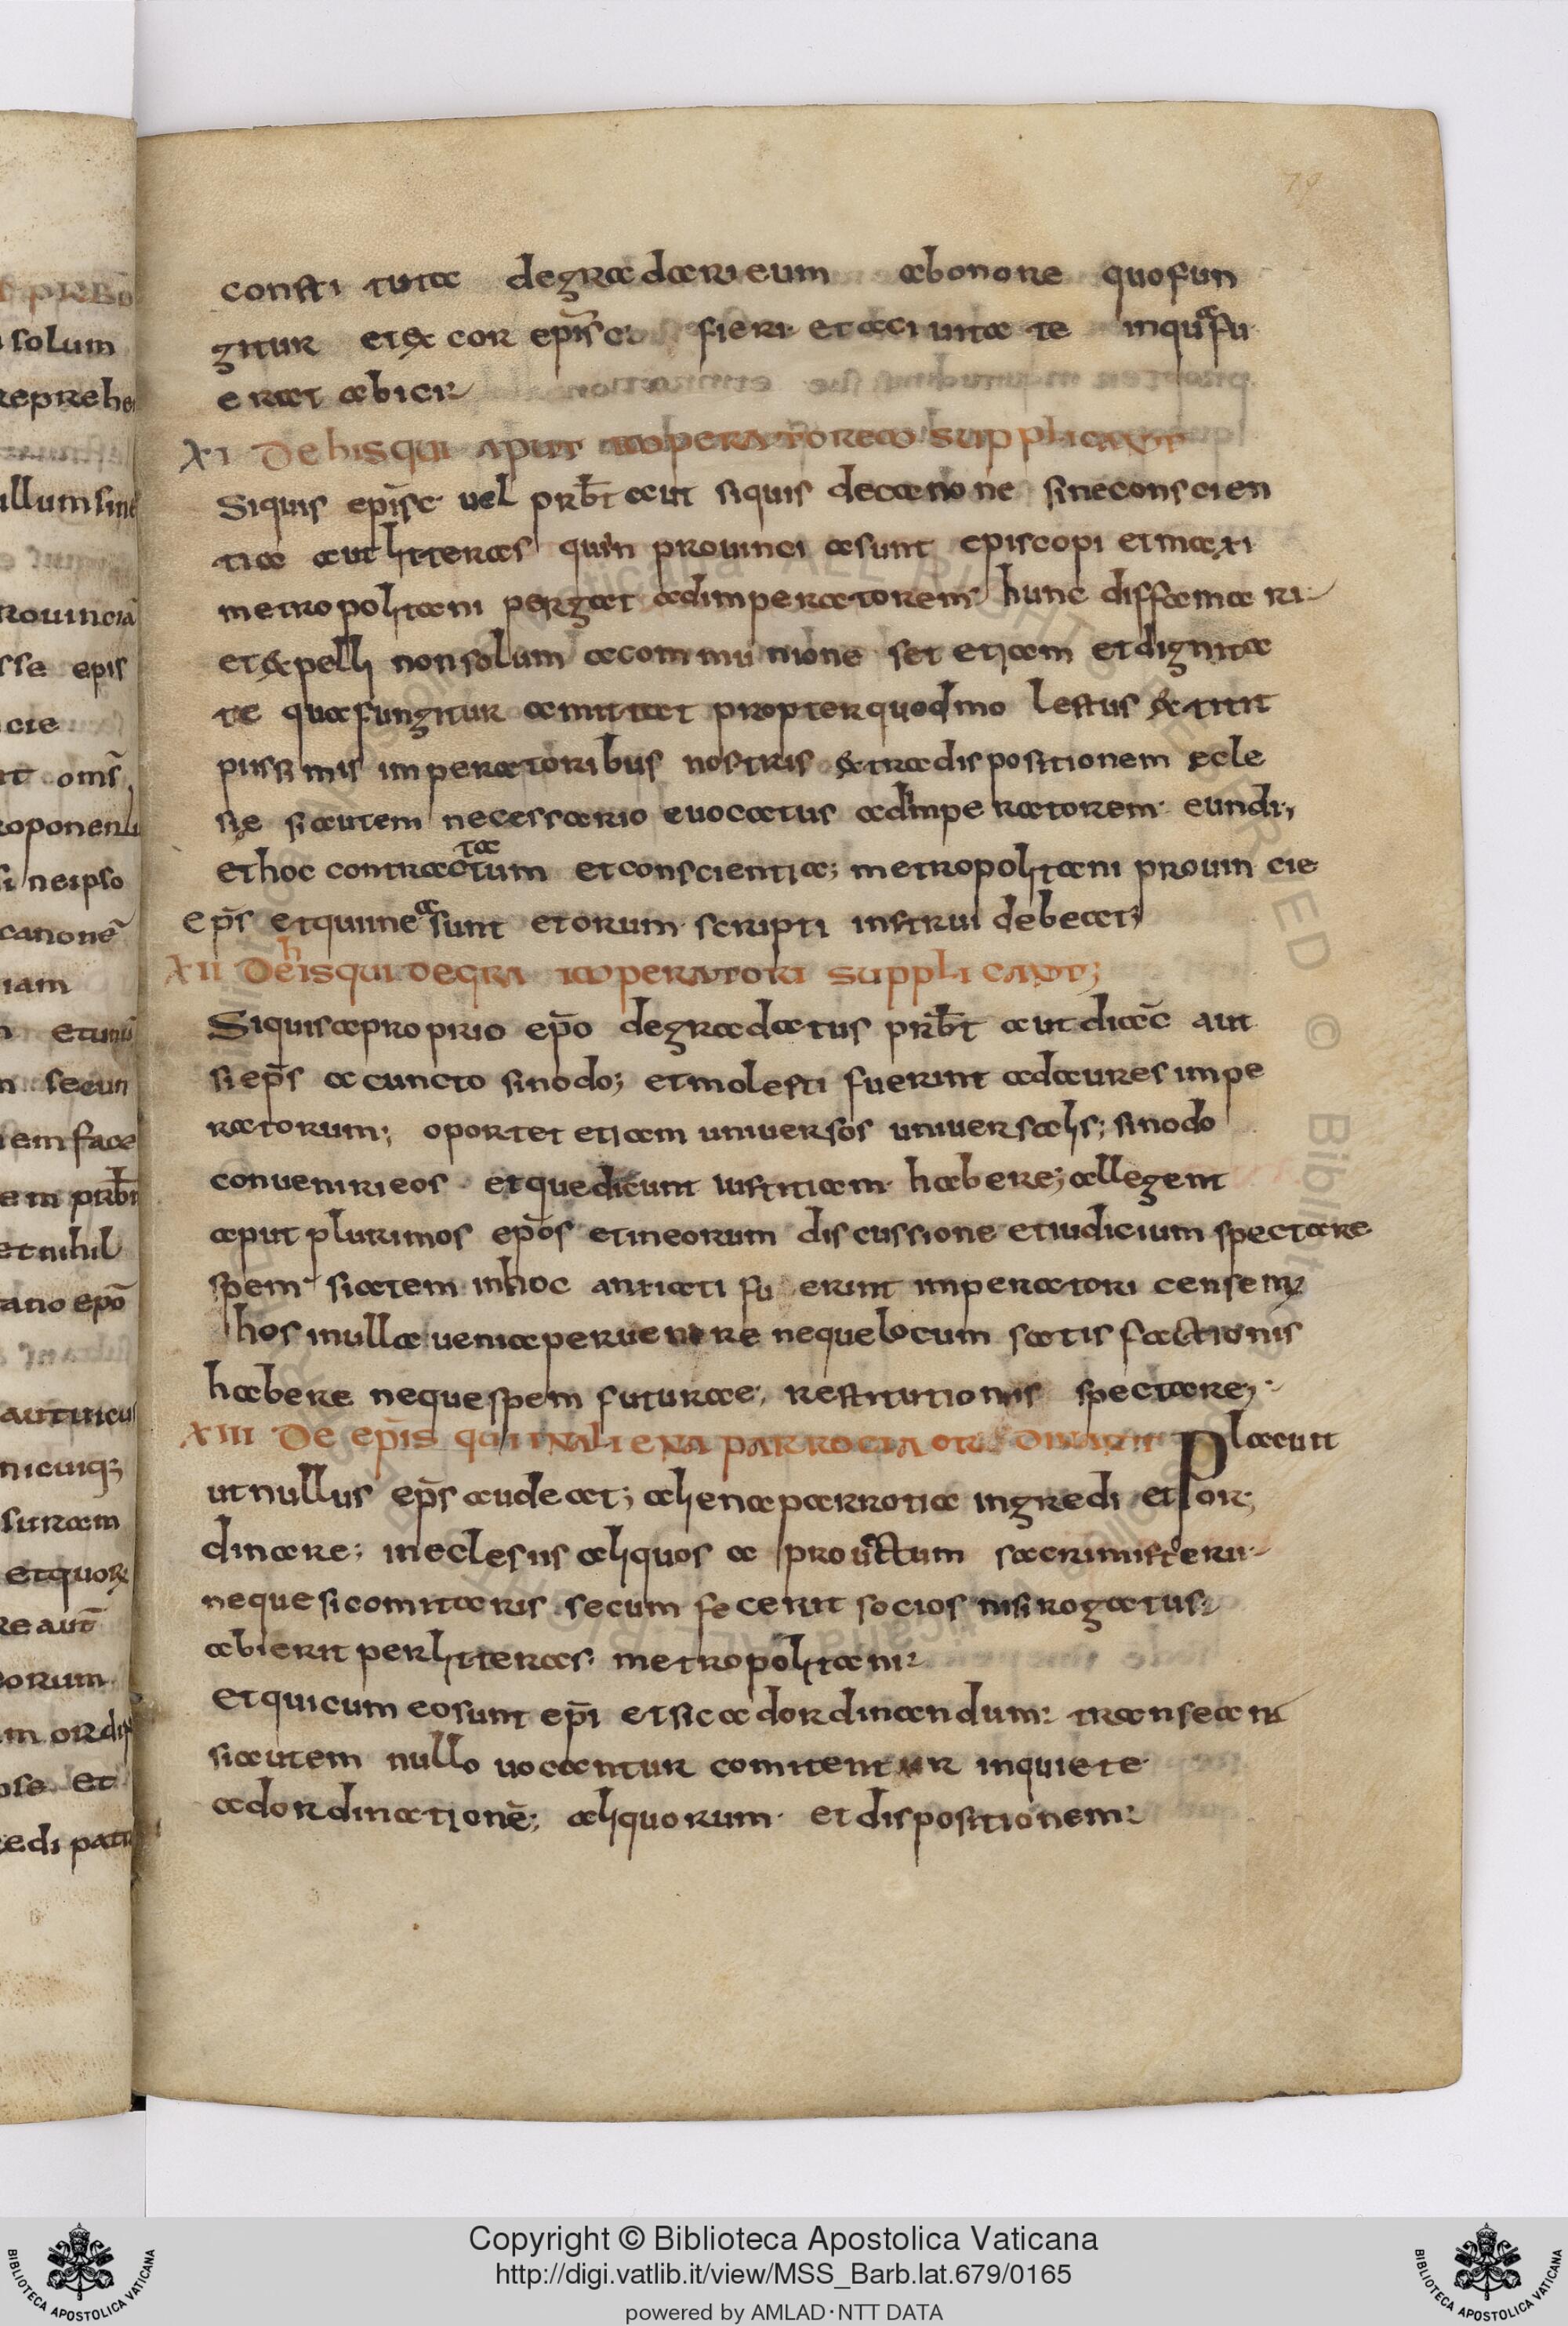 consti tuta degradari eum abonore quofun
gitur etex cor epīsc fieri et aciuita te inquafu
erat abicr
XI Dehisqui aput imperatorem supplicant
Siquis epīsc vel prbt aut siquis decanone sineconscien
tia aut litteras quin provinci asunt episcopi etmaxi
metropolitani pergat adimperatorem hunc diffama ri
etexpelli nonsolum acommunione set etiam etdignita
te quafungitur amittat propterquodmo lestus extitit
piissimis imperatoribus nostris extradispositionem ecle
sie siautem necessario evocatus adimperatorem eundi,
ethoc contractatum etconscientia; metropolitani provin cie
ep̄s etquiineasunt etorum scripti instrui debeat;
XII Dehisquidegra imperatori supplicant;
Siquisaproprio epō degradatus prbt aut diac̄ aut
si ep̄s a cuncto sinodo; etmolesti fuerint adaures impe
ratorum; oportet etiam universos universalis; sinodo
convenirieos etquedicunt iustitiam habere; allegent
aput plurimos epōs etineorum discussione etiudicium spectare
spem siatem inhoc antiati fu erint imperatori censem;
hos inulla veniapervenire nequelocum satis factionis
habere nequespem futurae; restitutionis spectare;
XIII De epīs qui inaliena parrocia ordinant Placuit
utnullus ep̄s audeat; alienaparrotia ingredi et or;
dinare; ineclesiis aliquos a provectum sacrimisterii
nequesicomitaris secum fecerit socios nisirogatus
abierit perlitteras metropolitani
etquicumeosunt ep̄i etsicadordinandum: transeant
siautem nullo vocantur comitentur inquiete
adordinationē; aliquorum etdispositionem:
Copyright © Biblioteca Apostolica Vaticana
http://digi.vatlib.it/view/MSS_Barb.lat.679/0165
powered by AMLAD·NTT DATA